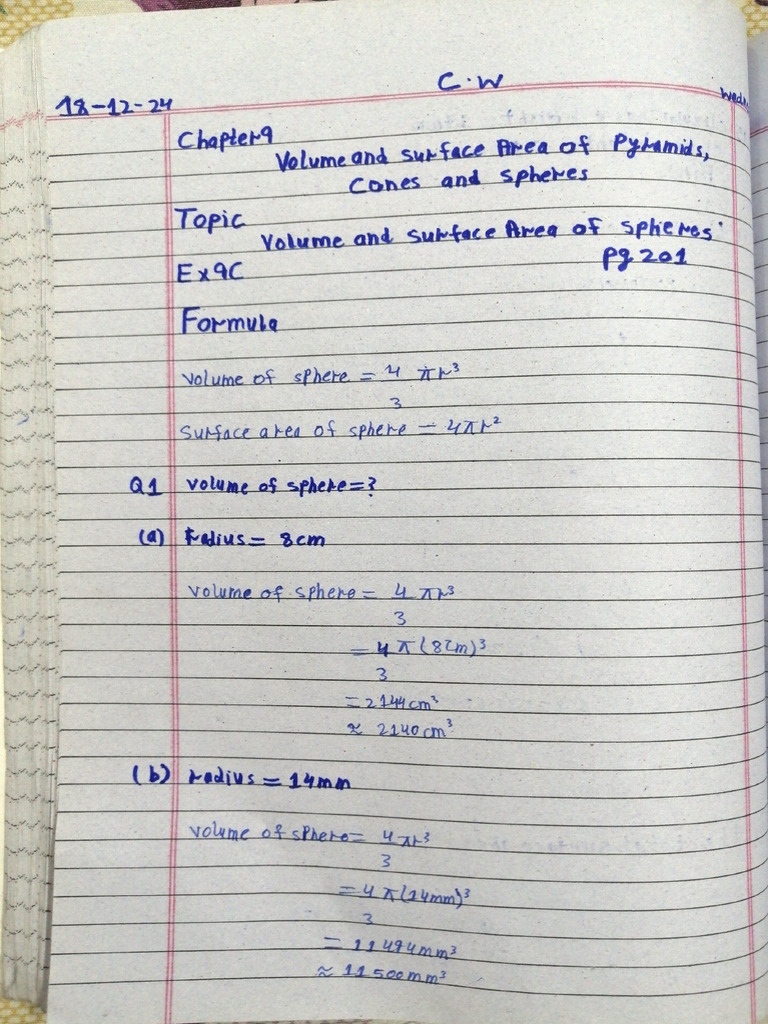 C.W
18-12-24
Chapter 9
Volume and surface Area of Pyramids,
Cones and spheres
Topic
Volume and surface Area of spheres
Ex9C
Pg 201
Formula
Volume of sphere = 4 πr³
3
Surface area of sphere = 4πr²
Q1 Volume of sphere=?
(a) radius= 8cm
Volume of sphere = 4 πr³
3
= 4 π (8cm)³
3
= 2144cm³
≈ 2140cm³
(b) radius = 14mm
Volume of sphere= 4 πr³
3
= 4 π(14mm)³
3
= 11494mm³
≈ 11500mm³